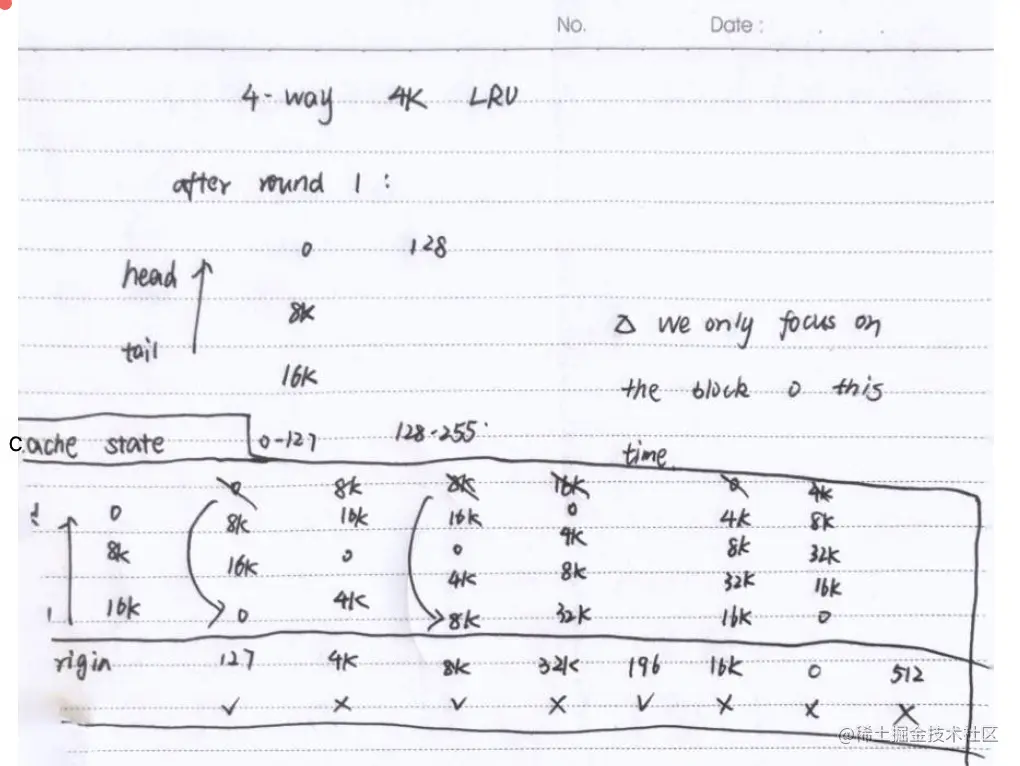 No. Date:
4-way 4K LRU
after round 1 :
0 128
head
8K
we only focus on
tail
16K
the block 0 this
cache state 0-127 128-255
time
0 8K 8K 16K 0 4K
0 8K 16K 16K 0 4K 8K
8K 16K 0 0 4K 8K 32K
16K 0 4K 4K 8K 32K 16K
8K 32K 16K 0
rigin 127 4K 8K 32K 196 16K 0 512
✓ × ✓ × ✓ × × ×
@稀土掘金技术社区